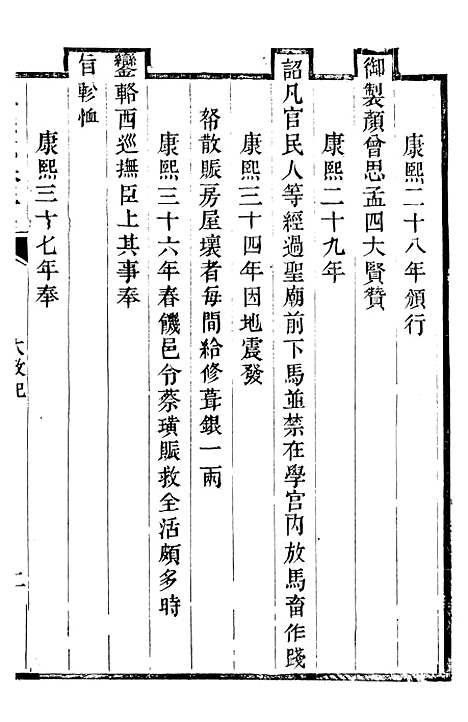 康熙二十八年頒行
御製顏曾思孟四大賢贊
康熙二十九年
詔凡官民人等經過聖廟前下馬並禁在學宮內放馬畜作踐
康熙三十四年因地震發
帑散賑房屋壞者每間給修葺銀一兩
康熙三十六年春饑邑令蔡璜賑救全活頗多時
鑾輅西巡撫臣上其事奉
旨軫恤
康熙三十七年奉
大政記